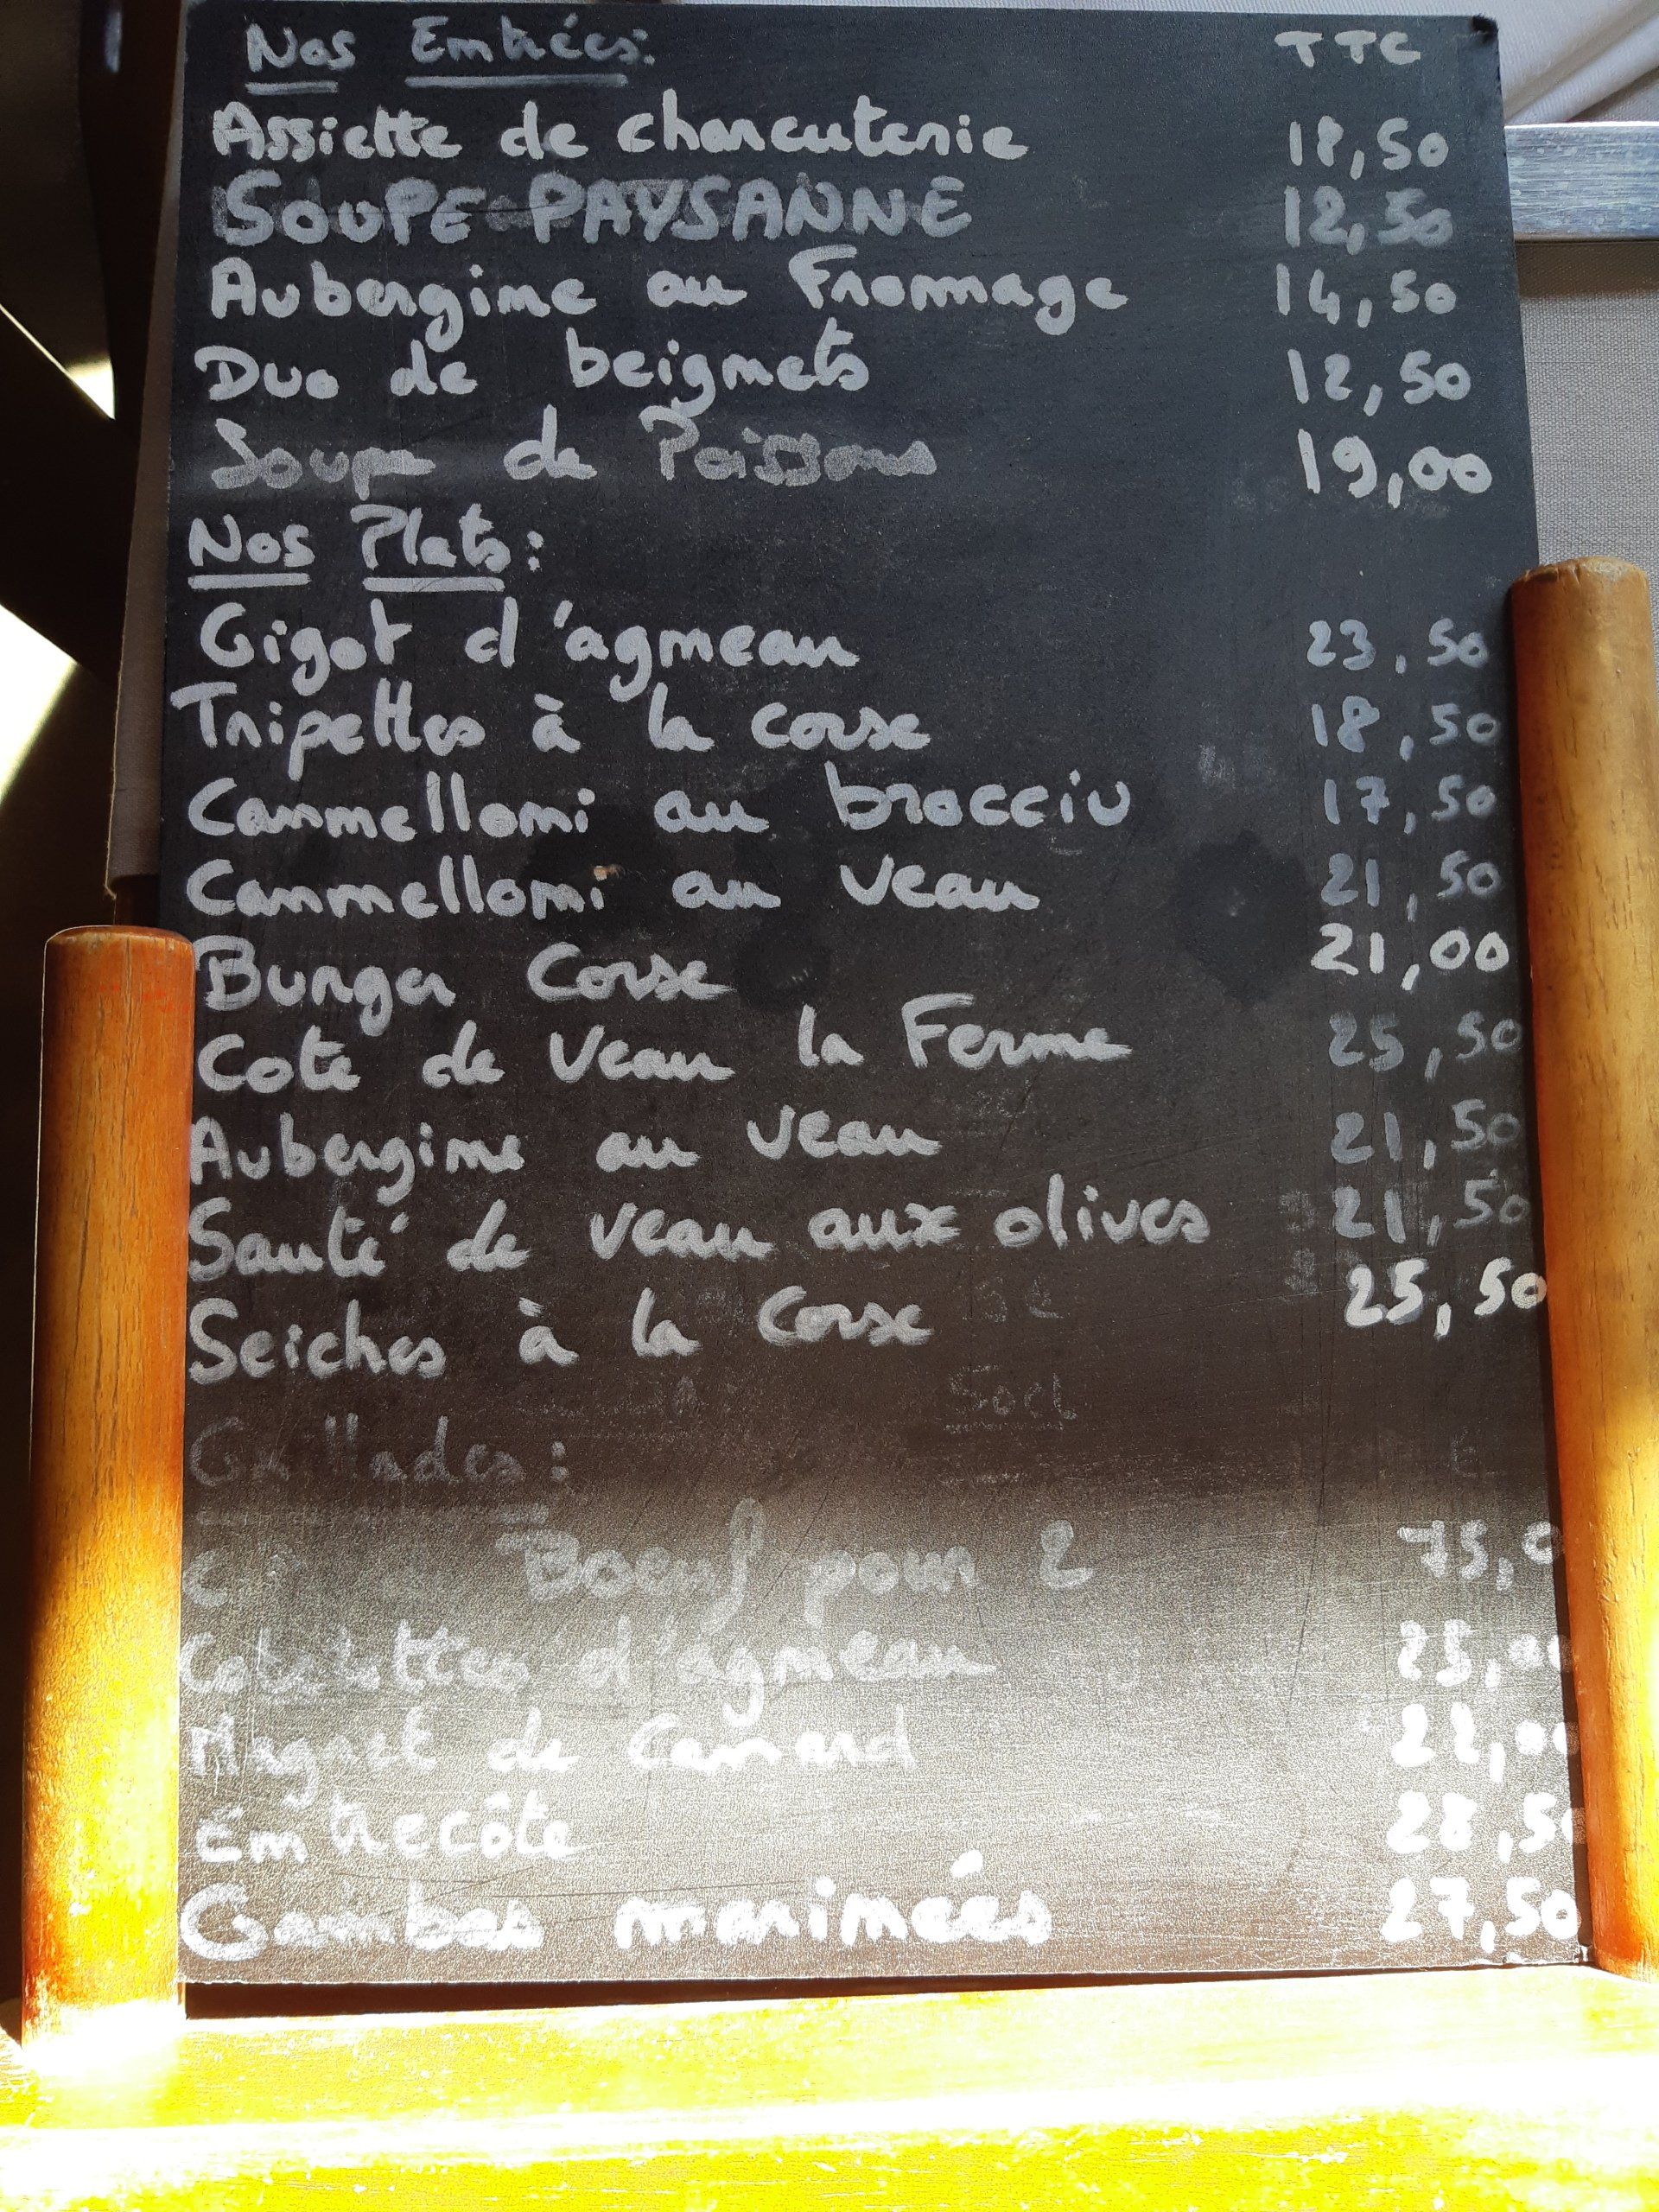 Nos Entrées: TTC
Assiette de charcuterie 18,50
SOUPE PAYSANNE 12,50
Aubergine au Fromage 14,50
Duo de beignets 12,50
Soupe de Poissons 19,00
Nos Plats:
Gigot d'agneau 23,50
Tripettes à la corse 18,50
Cannelloni au brocciu 17,50
Cannelloni au veau 21,50
Burger Corse 21,00
Cote de Veau la Ferme 25,50
Aubergine au veau 21,50
Sauté de veau aux olives 21,50
Seiches à la Corse 25,50
Grillades:
Boeuf pour 2 75,0
Cotelettes d'agneau
Magret de Canard 22,00
Entrecôte 28,50
Gambas marinées 27,50